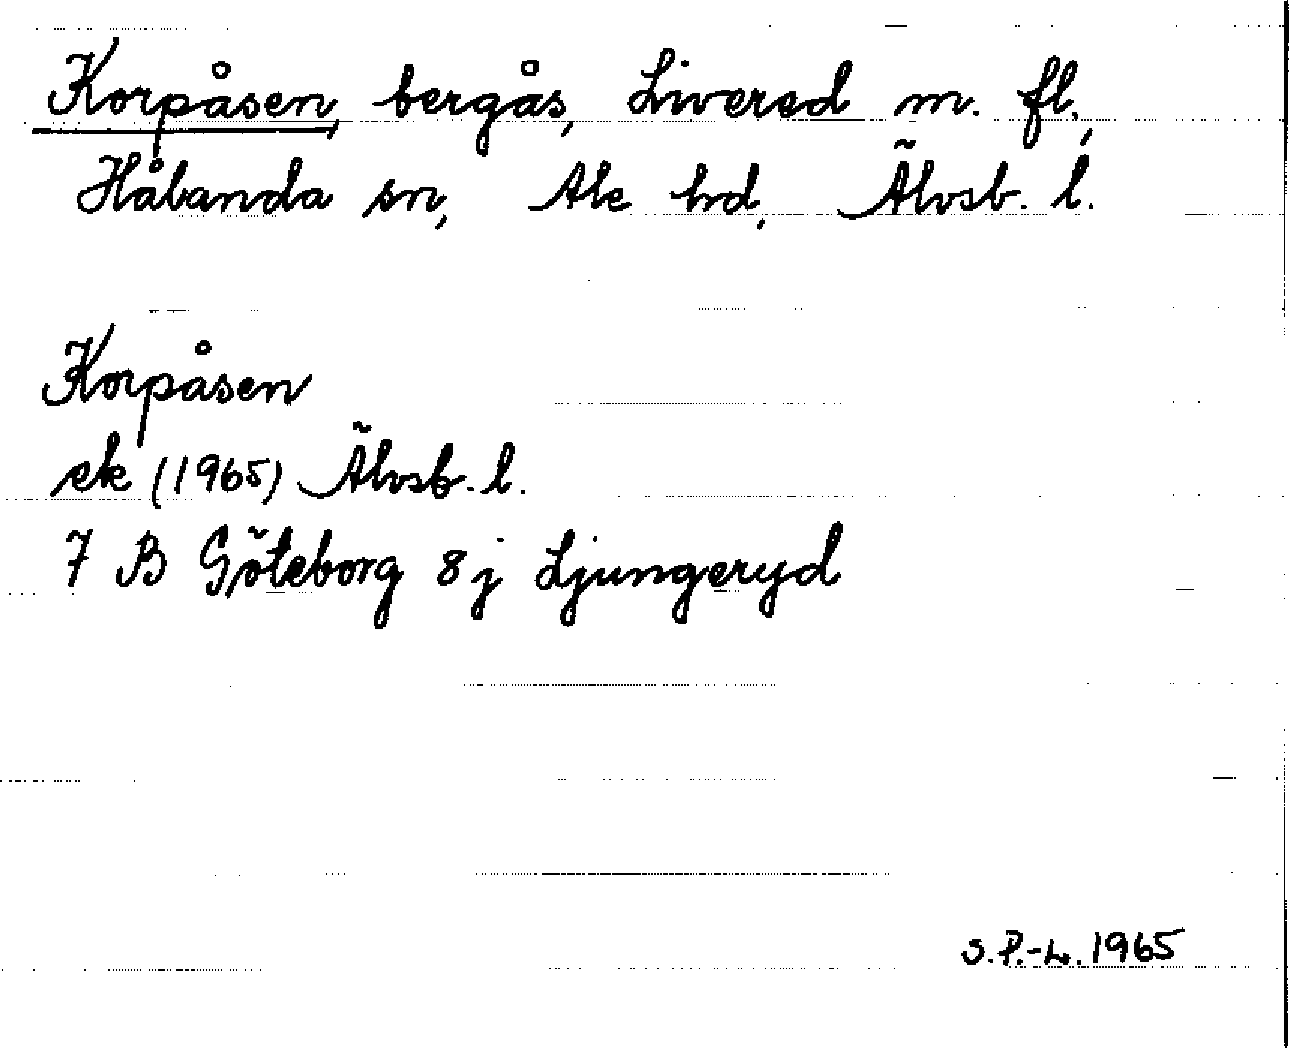 Korpåsen, bergås, Livered m. fl.,
Hålanda sn, Ale hd, Älvsb. l.
Korpåsen
ek (1965) Älvsb. l.
7 B Göteborg 8 j Ljungeryd
S.P.-L. 1965